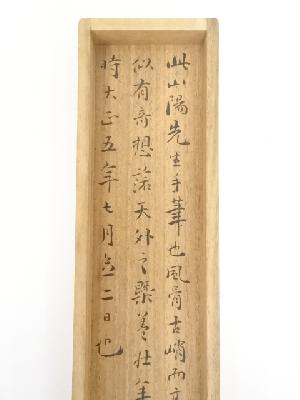 此山陽先生手筆也風骨古峭而
似有奇想落天外之槩蓋壮年
時大正五年七月念二日也